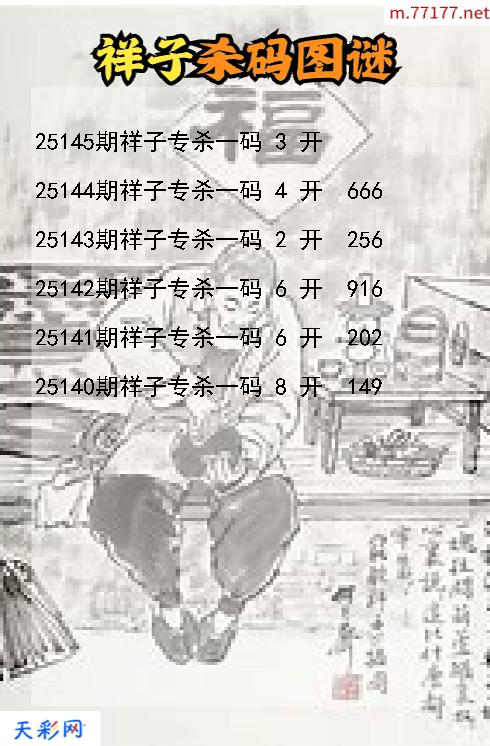 m.77177.net
祥子杀码图谜
福
25145期祥子专杀一码 3 开
25144期祥子专杀一码 4 开 666
25143期祥子专杀一码 2 开 256
25142期祥子专杀一码 6 开 916
25141期祥子专杀一码 6 开 202
25140期祥子专杀一码 8 开 149
天彩网